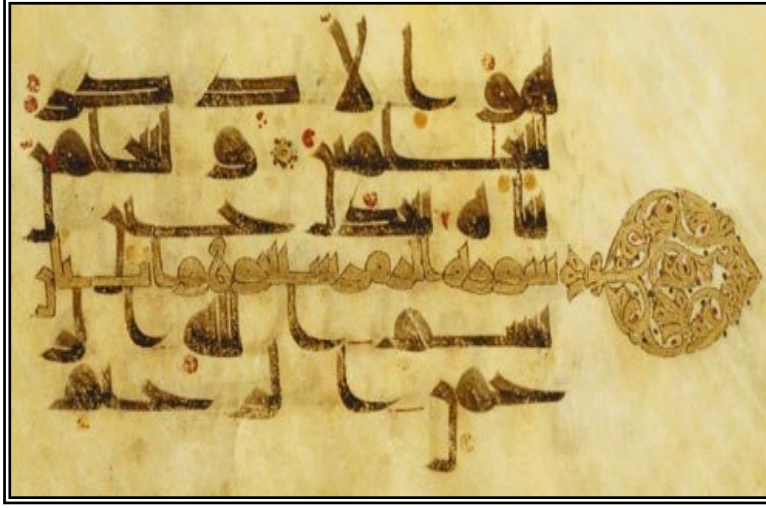 هو الا ذكر
للعلمين ولتعلمن
نباه بعد حين
سورة الزمر سبعون واثنتان
بسم الله الر
حمن الرحيم